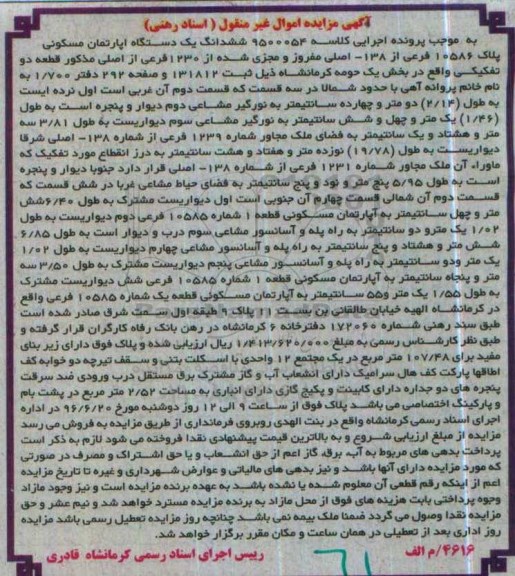 آگهی مزایده اموال غیر منقول ( اسناد رهنی)
به موجب پرونده اجرایی کلاسه ۹۵۰۰۰۵۴ ششدانگ یک دستگاه آپارتمان مسکونی
پلاک ۱۰۵۸۶ فرعی از ۱۳۸- اصلی مفروز و مجزی شده از ۱۲۳۰ فرعی از اصلی مذکور قطعه دو
تفکیکی واقع در بخش یک حومه کرمانشاه ذیل ثبت ۱۳۱۸۱۲ و صفحه ۲۹۲ دفتر ۱/۷۰۰ به
نام خانم پروانه آهی با حدود شمالا در سه قسمت که قسمت دوم آن غربی است اول نرده ایست
به طول (۲/۱۴) دو متر و چهارده سانتیمتر به نورگیر مشاعی دوم دیوار و پنجره است به طول
(۱/۴۶) یک متر و چهل و شش سانتیمتر به نورگیر مشاعی سوم دیواریست به طول ۳/۸۱ سه
متر و هشتاد و یک سانتیمتر به فضای ملک مجاور شماره ۱۲۳۹ فرعی از شماره ۱۳۸- اصلی شرقا
دیواریست به طول (۱۹/۷۸) نوزده متر و هفتاد و هشت سانتیمتر به درز انقطاع مورد تفکیک که
ماوراء آن ملک مجاور شماره ۱۲۳۱ فرعی از شماره ۱۳۸- اصلی قرار دارد جنوبا دیوار و پنجره
است به طول ۵/۹۵ پنج متر و نود و پنج سانتیمتر به فضای حیاط مشاعی غربا در شش قسمت که
قسمت دوم آن شمالی قسمت چهارم آن جنوبی است اول دیواریست مشترک به طول ۶/۴۰شش
متر و چهل سانتیمتر به آپارتمان مسکونی قطعه ۱ شماره ۱۰۵۸۵ فرعی دوم دیواریست به طول
۱/۰۲ یک مترو دو سانتیمتر به راه پله و آسانسور مشاعی سوم درب و دیوار است به طول ۶/۸۵
شش متر و هشتاد و پنج سانتیمتر به راه پله و آسانسور مشاعی چهارم دیواریست به طول ۱/۰۲
یک متر ودو سانتیمتر به راه پله و آسانسور مشاعی پنجم دیواریست مشترک به طول ۳/۵۰ سه
متر و پنجاه سانتیمتر به آپارتمان مسکونی قطعه ۱ شماره ۱۰۵۸۵ فرعی شش دیواریست مشترک
به طول ۱/۵۵ یک متر و۵۵ سانتیمتر به آپارتمان مسکونی قطعه یک شماره ۱۰۵۸۵ فرعی واقع
در کرمانشاه الهیه خیابان طالقانی بن بست ۱۰ پلاک ۱ طبقه اول سمت شرق صادر شده است
طبق سند رهنی شماره ۱۷۲۰۶۰ دفترخانه ۶ کرمانشاه در رهن بانک رفاه کارگران قرار گرفته و
طبق نظر کارشناس رسمی به مبلغ ۱/۴۱۳/۶۲۰/۰۰۰ ریال ارزیابی شده و پلاک فوق دارای زیر بنای
مفید برای ۱۰۷/۴۸ متر مربع در یک مجتمع ۱۲ واحدی با اسکلت بتنی و سقف تیرچه دو خوابه کف
اطاقها پارکت کف هال سرامیک دارای انشعاب آب و گاز مشترک برق مستقل درب ورودی ضد سرقت
پنجره های دو جداره دارای کابینت و پکیج گازی دارای انباری به مساحت ۲/۵۲ متر مربع در پشت بام
و پارکینگ اختصاصی می باشد پلاک فوق از ساعت ۹ الی ۱۲ روز دوشنبه مورخ ۹۶/۶/۲۰ در اداره
اجرای اسناد رسمی کرمانشاه واقع در بنت الهدی روبروی فرمانداری از طریق مزایده به فروش می رسد
مزایده از مبلغ ارزیابی شروع و به بالاترین قیمت پیشنهادی نقدا فروخته می شود لازم به ذکر است
پرداخت بدهی های مربوط به آب، برق، گاز اعم از حق انشعاب و یا حق اشتراک و مصرف در صورتی
که مورد مزایده دارای آنها باشد و نیز بدهی های مالیاتی و عوارض شهرداری و غیره تا تاریخ مزایده
اعم از اینکه رقم قطعی آن معلوم شده یا نشده باشد به عهده برنده مزایده است و نیز وجود مازاد
وجوه پرداختی بابت هزینه های فوق از محل مازاد به برنده مزایده مسترد خواهد شد و نیم عشر و حق
مزایده نقدا وصول می گردد ضمنا ملک بیمه نمی باشد چنانچه روز مزایده تعطیل رسمی باشد مزایده
روز اداری بعد از تعطیلی در همان ساعت و مکان مقرر برگزار خواهد شد.
۴۶۱۶/م الف
رییس اجرای اسناد رسمی کرمانشاه قادری